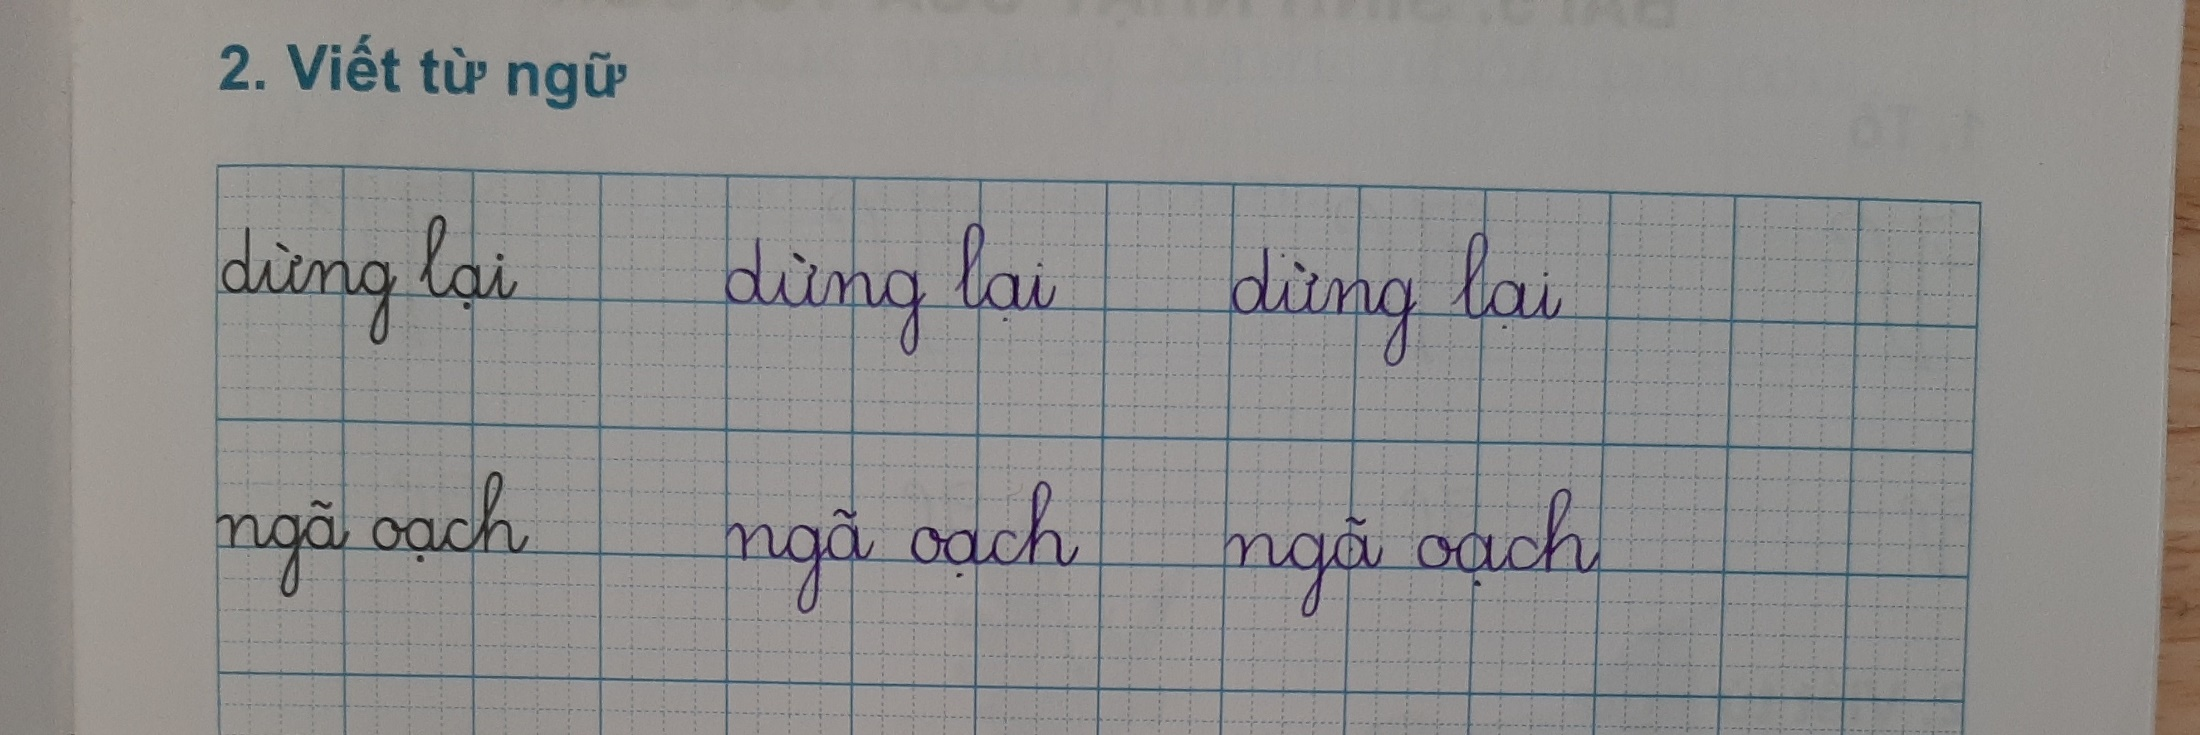 2. Viết từ ngữ
dừng lại dừng lại dừng lại
ngã oạch ngã oạch ngã oạch